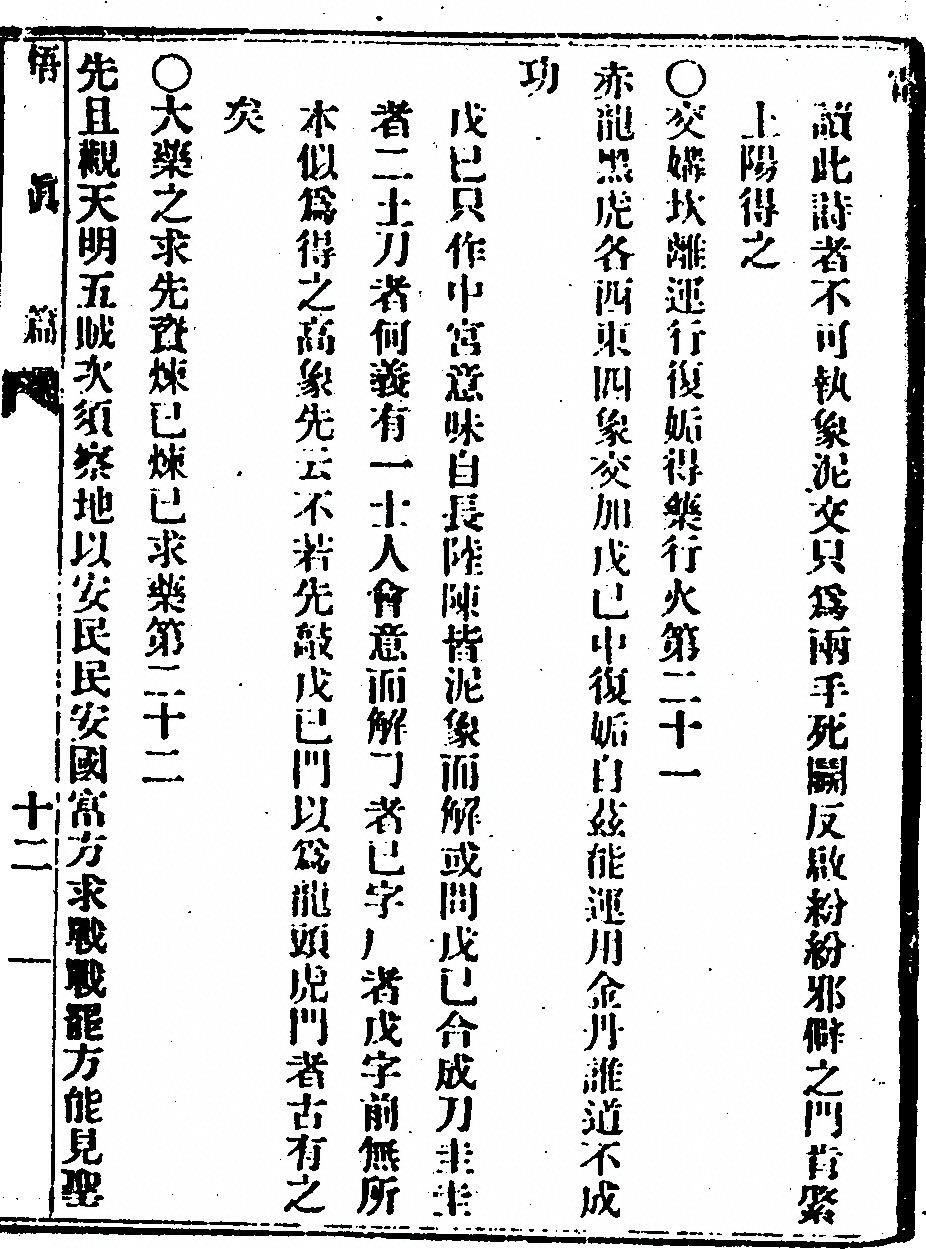 讀此詩者不可執象泥文只爲兩手死鬭反啟紛紛邪僻之門肯綮
上陽得之
〇交媾坎離運行復姤得藥行火第二十一
赤龍黑虎各西東四象交加戊己中復姤自茲能運用金丹誰道不成
功
戊已只作中宮意味自長陸陳皆泥象而解或問戊已合成刀圭圭
者二土刀者何義有一士人會意而解㇆者已字丿者戊字前無所
本似爲得之高象先云不若先敲戊已門以爲龍頭虎門者古有之
矣
〇大藥之求先資煉已煉已求藥第二十二
先且觀天明五賊次須察地以安民民安國富方求戰戰罷方能見聖
悟眞篇
十二
一